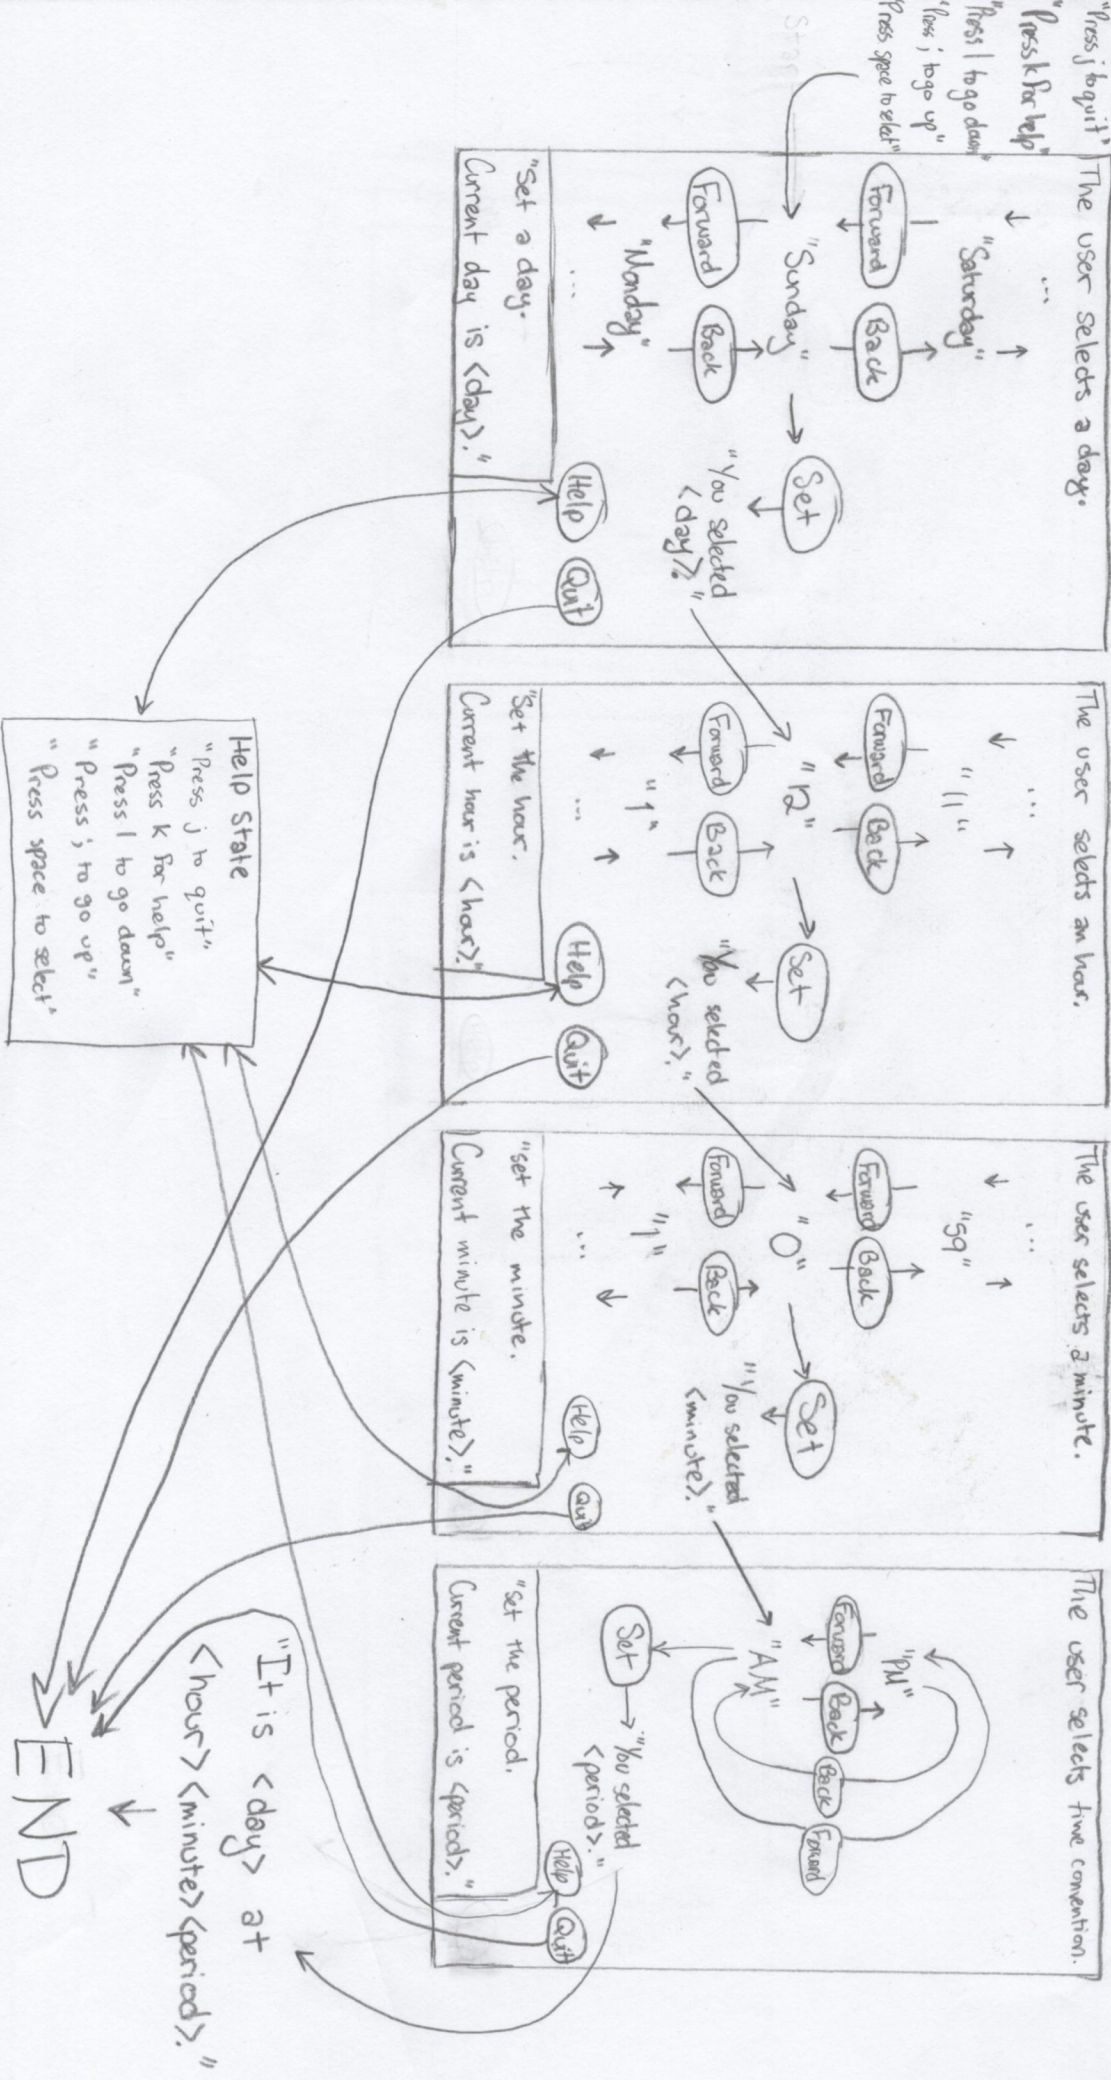 "Press j to quit"
"Press k for help"
"Press l to go down"
"Press ; to go up"
"Press space to select"
Start
The user selects a day.
...
"Saturday"
Forward
Back
"Sunday"
Set
Forward
Back
"You selected
<day>."
"Monday"
...
Help
Quit
"Set a day.
Current day is <day>."
The user selects an hour.
...
"11"
Forward
Back
"12"
Set
Forward
Back
"You selected
<hour>."
"1"
...
Help
Quit
"Set the hour.
Current hour is <hour>."
The user selects a minute.
...
"59"
Forward
Back
"0"
Set
Forward
Back
"You selected
<minute>."
"1"
...
Help
Quit
"set the minute.
Current minute is <minute>."
The user selects time convention.
"PM"
Forward
Back
Back
Forward
"AM"
Set
"You selected
<period>."
Help
Quit
"set the period.
Current period is <period>."
Help State
"Press j to quit"
"Press k for help"
"Press l to go down"
"Press ; to go up"
"Press space to select"
"It is <day> at
<hour><minute><period>."
END